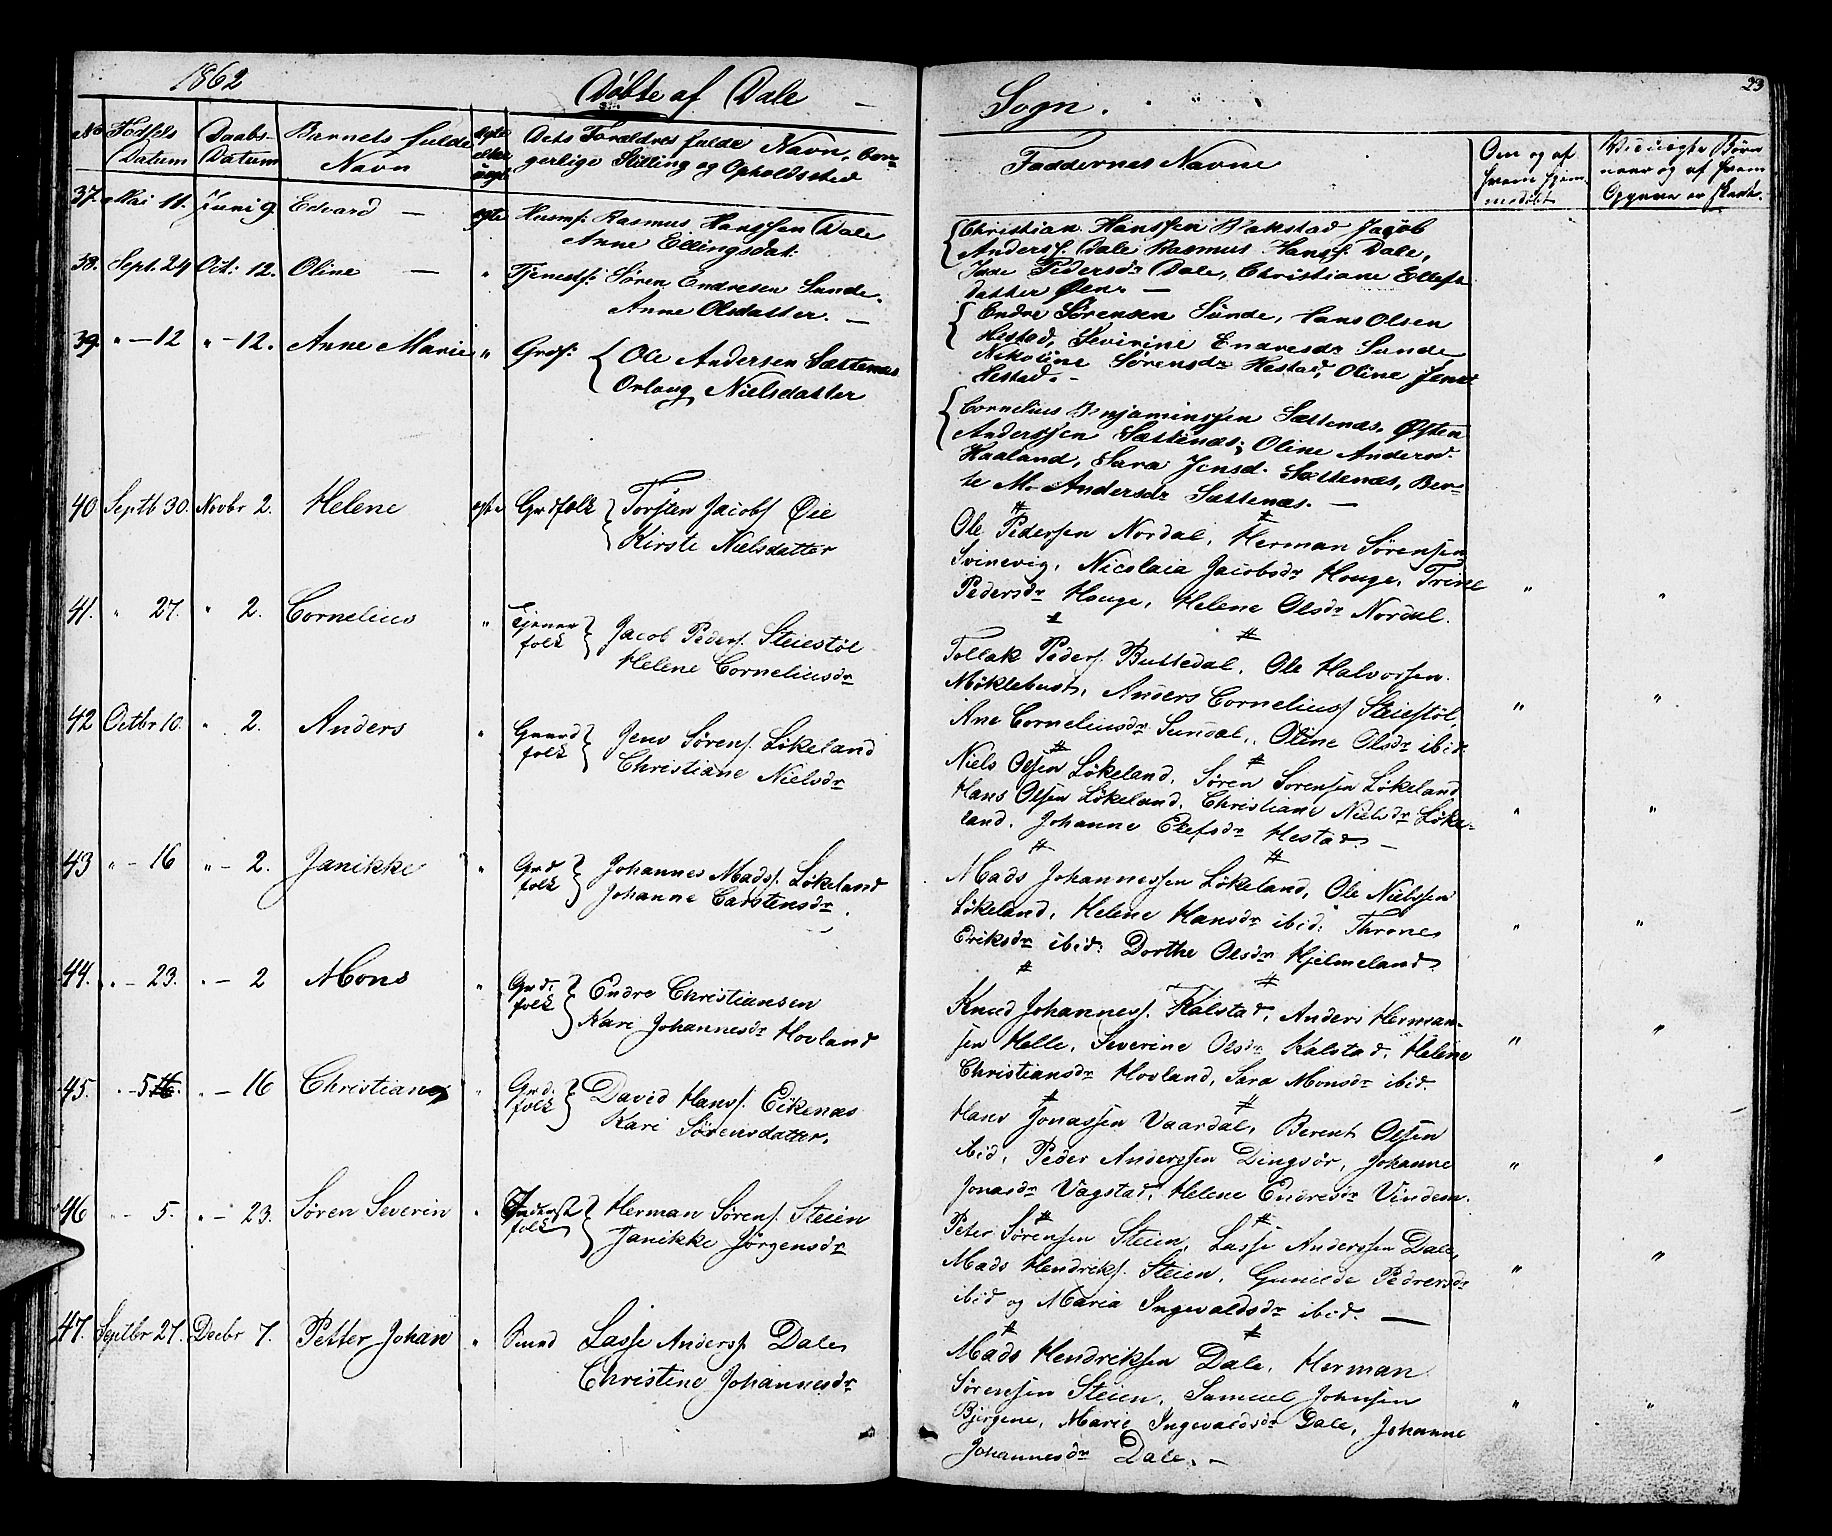 1862 Døbte af Dale — Sogn. 23
No Fødsels Datum
Daabs-Datum
Barnets fulde Navn
ægte eller uægte
Dets Forældres fulde Navn, borgerlige Stilling og Opholdssted
Faddernes Navne
Om og af hvem hjemmedøbt
37. Mai 11. Juni 9. Edvard — ægte Husmf: Rasmus Hanssen Dale
Anne Ellingsdat:
Christian Hanssen Jacob
Anderss. Dale Rasmus Hanss. Dale,
Pedersdr Dale, Christiane
datter Øen. —
38. Sept. 24 Oct: 12. Oline — " Tjenestf: Søren Endresen Sunde.
Anne Olsdatter. —
Endre Sørensen Sunde, Hans Olsen
Hestad, Severine Endresdr Sunde
Nikoline Sørensdr Hestad, Oline
Hestad. -
39. " — 12 " — 12. Anne Marie " Grdf: Ole Andersen Sættenæs
Orlaug Nielsdatter
Cornelius Benjaminssen Sættenæs, Østen
Anderssen Sættenæs, Oline Andersd.
Haaland, Sara Jensd. Sættenæs, Ber-
te M. Andersdr Sættenæs. —
40 Septb 30. Novbr 2. Helene ægte Grdfolk Torsten Jacobs. Øie
Kirste Nielsdatter
Ole Pedersen Nordal, Herman Sørensen
Svinevig, Nicolaia Jacobsdr Houge, Trine
Pedersdr Houge, Helene Olsdr Nordal.
" "
41. " 27. " 2. Cornelius " Tjener
folk Jacob Peders. Steiestøl
Helene Corneliusdr
Tollak Peders. Buttedal, Ole Halvorsen
Møklebust, Anders Corneliuss Steiestøl,
Ane Corneliusdr Sundal, Oline Olsdr ibid
" "
42 Octbr 10. " 2. Anders " Gaard
folk Jens Sørens. Løkeland
Christiane Nielsdr
Niels Olsen Løkeland, Søren Sørensen Løkeland
Hans Olsen Løkeland, Christiane Nielsdr Løke-
land. Johanne Elefsdr Hestad. —
" "
43 " - 16 " - 2. Janikke " Grd
folk Johannes Mads. Løkeland
Johanne Carstensdr.
Mads Johannessen Løkeland, Ole Nielssen
Løkeland, Helene Hansdr ibid: Throne
Eriksdr ibid: Dorthe Olsdr Hjelmeland.
" "
44. " - 23. " - 2 Mons " Grd.
folk Endre Christiansen
Kari Johannesdr Hovland
Knud Johanness. Kalstad, Anders Herman-
sen Helle, Severine Olsdr Kalstad, Helene
Christiansdr Hovland, Sara Monsdr ibid.
" "
45. " 5 " - 16 Christiane " Grd.
folk David Hanss. Eikenæs
Kari Sørensdatter.
Hans Jonassen Vaardal, Berent Olsen
ibid, Peder Anderssen Dingsør, Johanne
Jonasdr Vagstad, Helene Endresdr Vindem.
" "
46 " - 5. " - 23. Søren Severin "
folk Herman Sørens. Steien
Janikke Jørgensdr
Peter Sørensen Steien, Lasse Anderssen Dale,
Mads Hendriks. Steien, Gunilde Pedersdr
ibid og Maria Ingevaldsdr ibid. —
" "
47. Septbr 27. Decbr 7. Petter Johan " Lasse Anderss. Dale
Christine Johannesdr
Mads Hendriksen Dale, Herman
Sørensen Steien, Samuel Johnsen
Bjergene, Marie Ingevaldsdr Dale, Johanne
Johannesdr Dale. —
" "